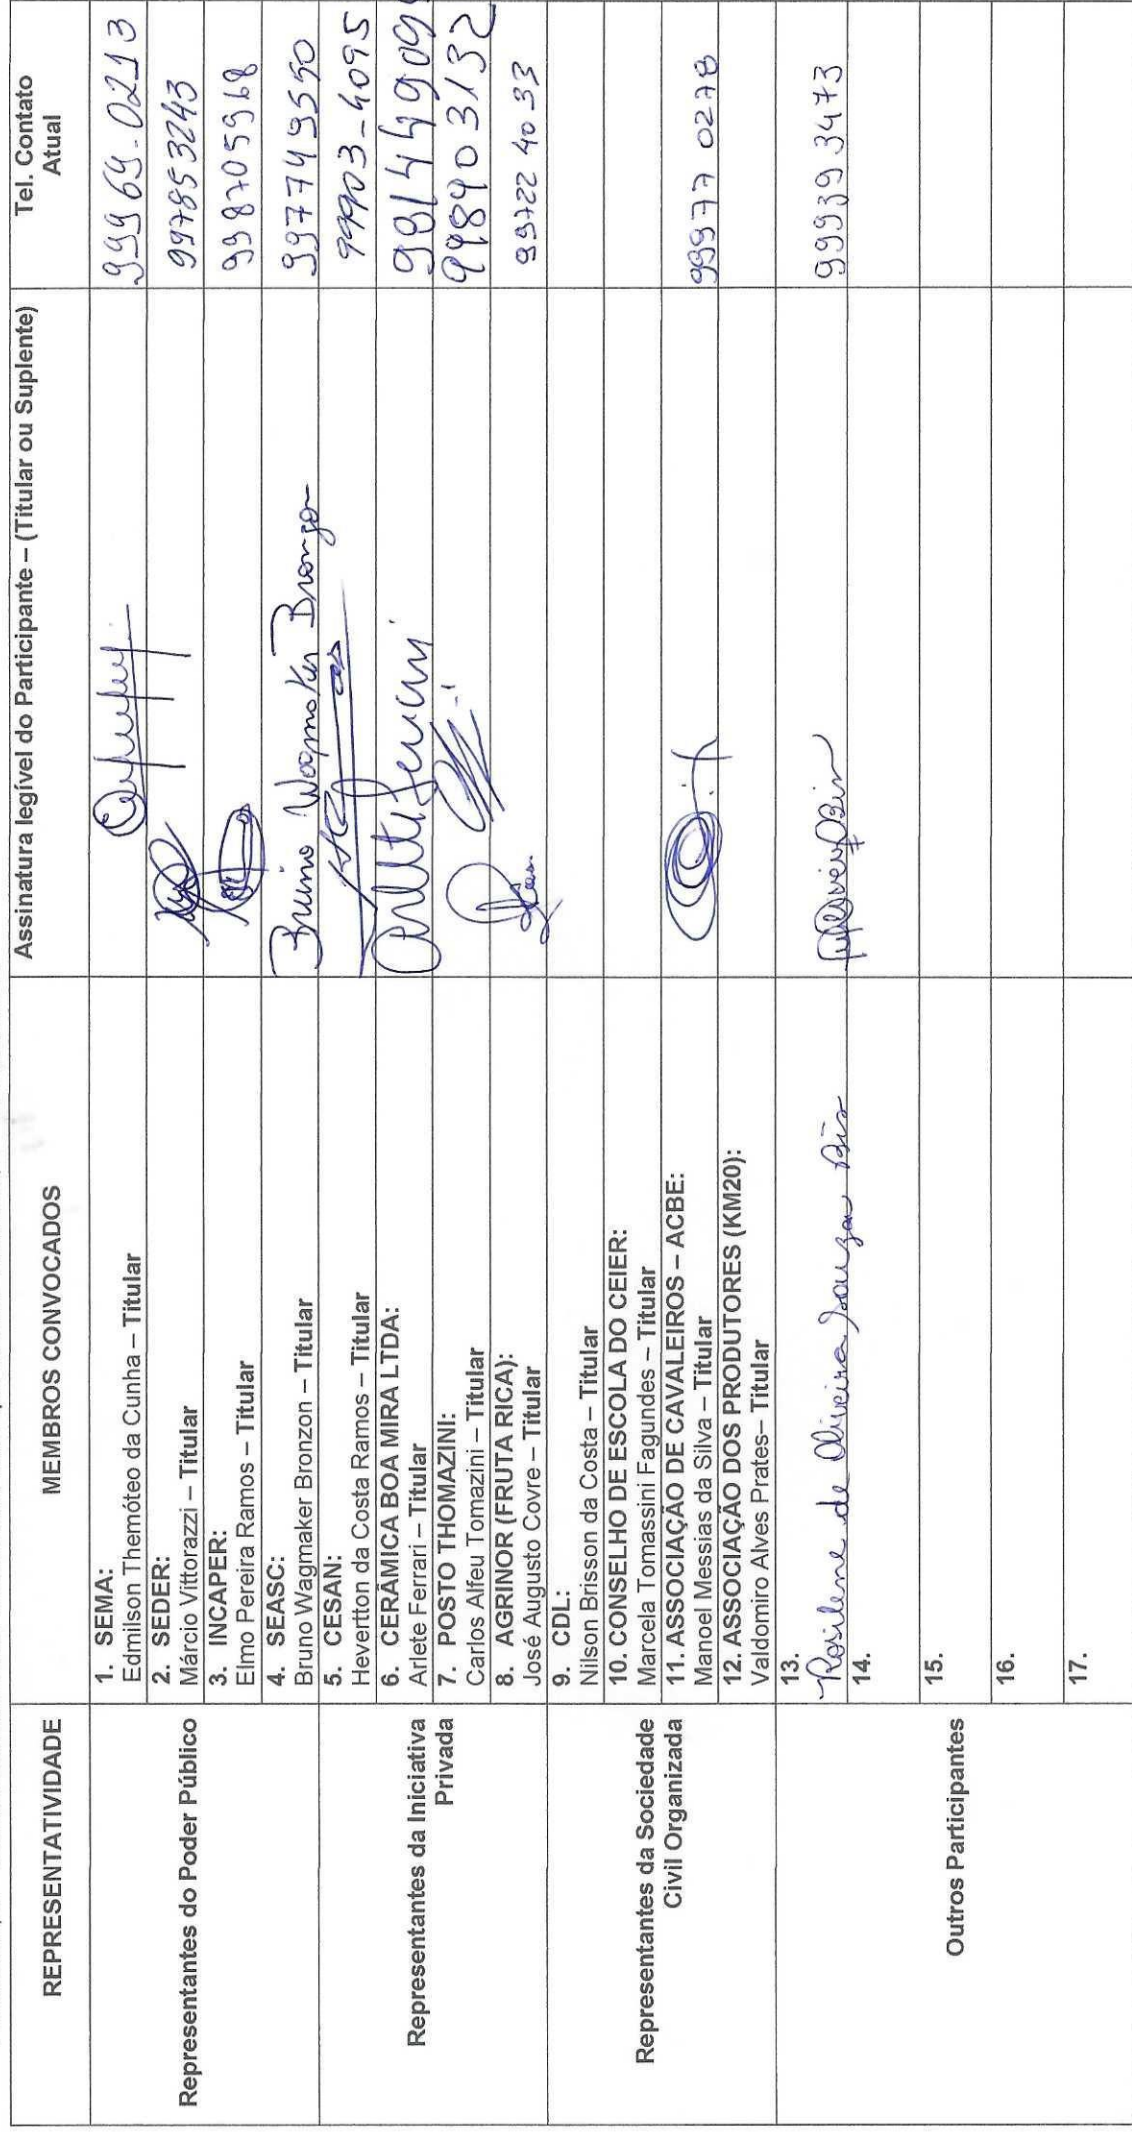 REPRESENTATIVIDADE
MEMBROS CONVOCADOS
Assinatura legível do Participante – (Titular ou Suplente)
Tel. Contato
Atual
Representantes do Poder Público
1. SEMA:
Edmilson Themóteo da Cunha – Titular
99969-0213
2. SEDER:
Márcio Vittorazzi – Titular
997853243
3. INCAPER:
Elmo Pereira Ramos – Titular
998705968
4. SEASC:
Bruno Wagmaker Bronzon – Titular
Bruno Wagmaker Bronzon
997749550
Representantes da Iniciativa
Privada
5. CESAN:
Hevertton da Costa Ramos – Titular
99903-4095
6. CERÂMICA BOA MIRA LTDA:
Arlete Ferrari – Titular
Arlete Ferrari
98144909
7. POSTO THOMAZINI:
Carlos Alfeu Tomazini – Titular
998903132
8. AGRINOR (FRUTA RICA):
José Augusto Covre – Titular
99722 40 33
Representantes da Sociedade
Civil Organizada
9. CDL:
Nilson Brisson da Costa – Titular
10. CONSELHO DE ESCOLA DO CEIER:
Marcela Tomassini Fagundes – Titular
11. ASSOCIAÇÃO DE CAVALEIROS – ACBE:
Manoel Messias da Silva – Titular
99977 0278
12. ASSOCIAÇÃO DOS PRODUTORES (KM20):
Valdomiro Alves Prates– Titular
Outros Participantes
13.
Rosilene de Oliveira Souza Bis
99939 3473
14.
15.
16.
17.